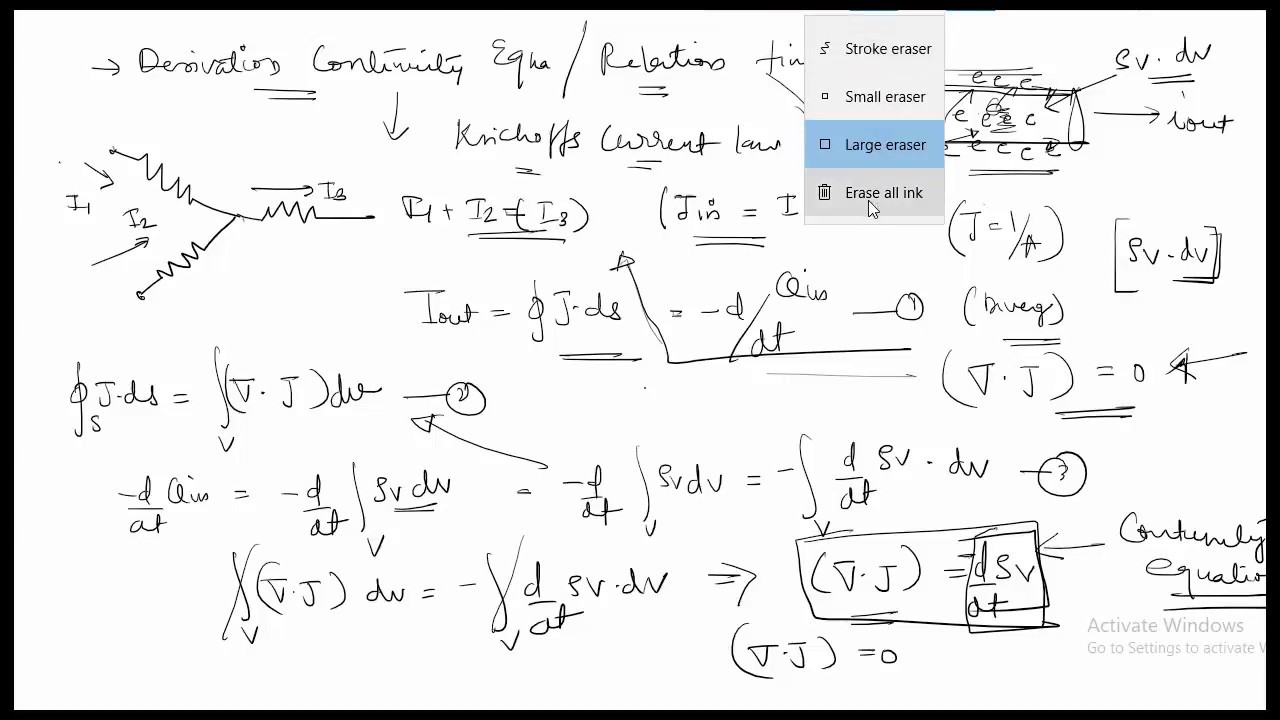 → Derivation Continuity Equa / Relation
Kirchoffs Current law
Stroke eraser
Small eraser
Large eraser
Erase all ink
e e e
e e e c
e e c e
ρv · dv
→ iout
I1
I2
I3
I1 + I2 = I3)
(Jin = I
(J = I/A)
[ρv · dv]
Iout = ∮ J·ds = -d Qin / dt — ①
(Diverg)
(∇ · J) = 0
∮S J·ds = ∫V (∇ · J) dv — ②
-d/dt Qin = -d/dt ∫V ρv dv = -d/dt ∫V ρv dv = -∫V d/dt ρv · dv — ③
∫V (∇·J) dv = -∫V d/dt ρv · dv ⇒ (∇·J) = dρv/dt
Continuity
equation
(∇·J) = 0
Activate Windows
Go to Settings to activate